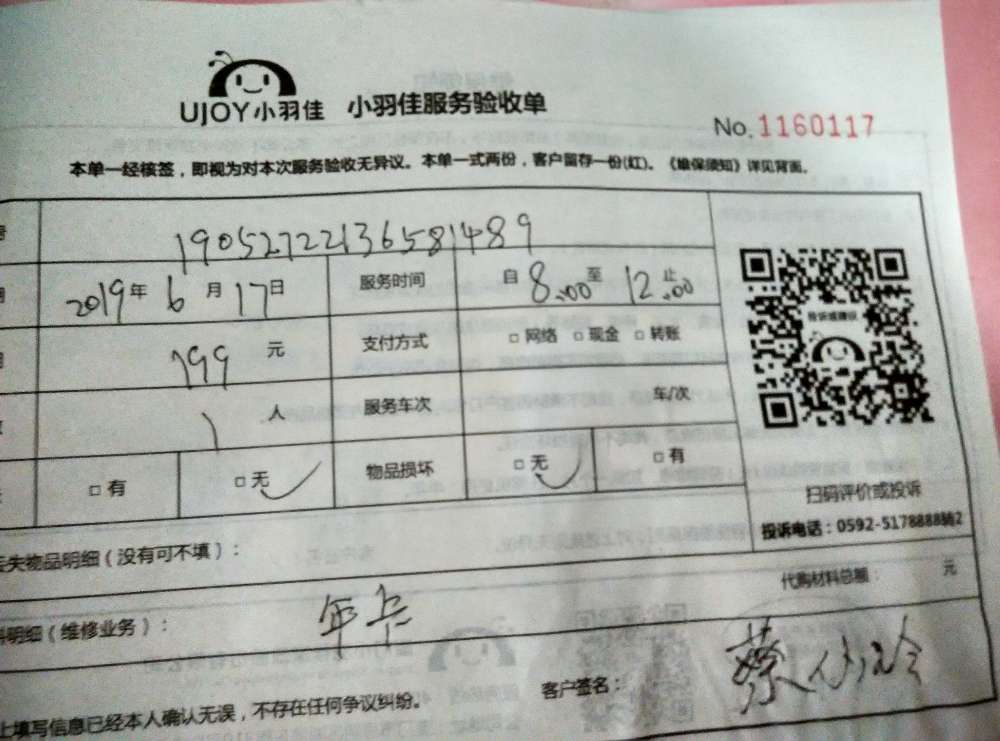 UJOY小羽佳 小羽佳服务验收单
No. 1160117
本单一经核签，即视为对本次服务验收无异议。本单一式两份，客户留存一份(红)。《维保须知》详见背面。
19052722136581489
2019年 6月 17日 服务时间 自 8:00 至 12:00 止
199 元 支付方式 □网络 □现金 □转账
1 人 服务车次 车/次
□有 □无 ✓ 物品损坏 □无 ✓ □有
投诉或建议
扫码评价或投诉
投诉电话：0592-5178888转2
失物品明细（没有可不填）：
代购材料总额： 元
明细（维修业务）： 年卡
上填写信息已经本人确认无误，不存在任何争议纠纷。 客户签名： 蔡